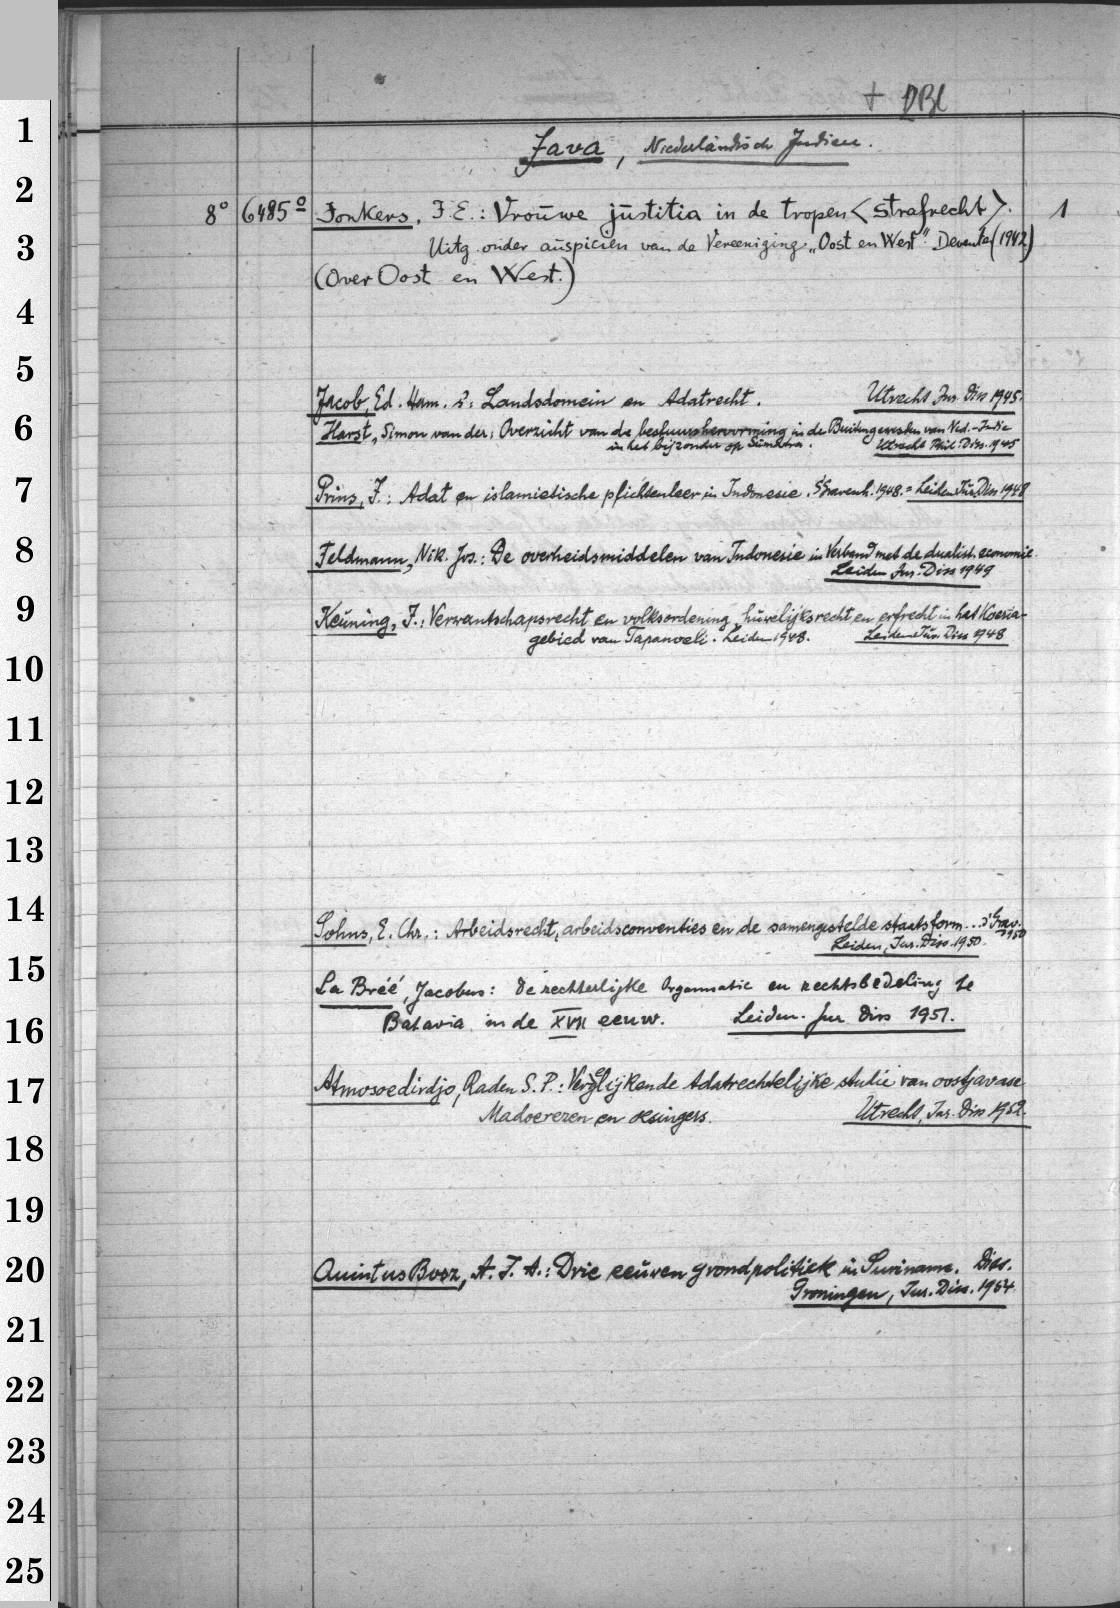 + DBl
Java, Niederländisch Indien.
8° 6485° Jonkers, J. E.: Vrouwe justitia in de tropen <strafrecht>. 1
Uitg. onder auspiciën van de Vereeniging „Oost en West" Deventer (1942)
(Over Oost en West.)
Jacob, Ed. Ham. S: Landsdomein en Adatrecht. Utrecht Jur. Diss 1945.
Harst, Simon van der: Overzicht van de bestuurshervorming in de Buitengewesten van Ned.-Indië
in het bijzonder op Sumatra. Utrecht Phil. Diss. 1945
Prins, J.: Adat en islamietische plichtenleer in Indonesie. s'Gravenh. 1948. = Leiden Jur. Diss 1948
Feldmann, Nik. Jos.: De overheidsmiddelen van Indonesie in Verband met de dualist. economie
Leiden Jur. Diss 1949
Keuning, J.: Verwantschapsrecht en volksordening, huwelijksrecht en erfrecht in het Koeria-
gebied van Tapanoeli. Leiden 1948. Leiden Jur. Diss 1948
Sohns, E. Chr.: Arbeidsrecht, arbeidsconventies en de samengestelde staatsform... s'Grav.
1950
Leiden, Jur. Diss. 1950.
La Bréé, Jacobus: De rechterlijke Organisatie en rechtsbedeling te
Batavia in de XVII eeuw. Leiden. Jur Diss 1951.
Atmosoedirdjo, Raden S. P.: Vergelijkende Adatrechtelijke studie van oostjavase
Madoerezen en Oesingers. Utrecht, Jur. Diss 1952.
Quintus Bosz, A. J. A.: Drie eeuwen grondpolitiek in Suriname. Diss.
Groningen, Jur. Diss. 1954
1
2
3
4
5
6
7
8
9
10
11
12
13
14
15
16
17
18
19
20
21
22
23
24
25